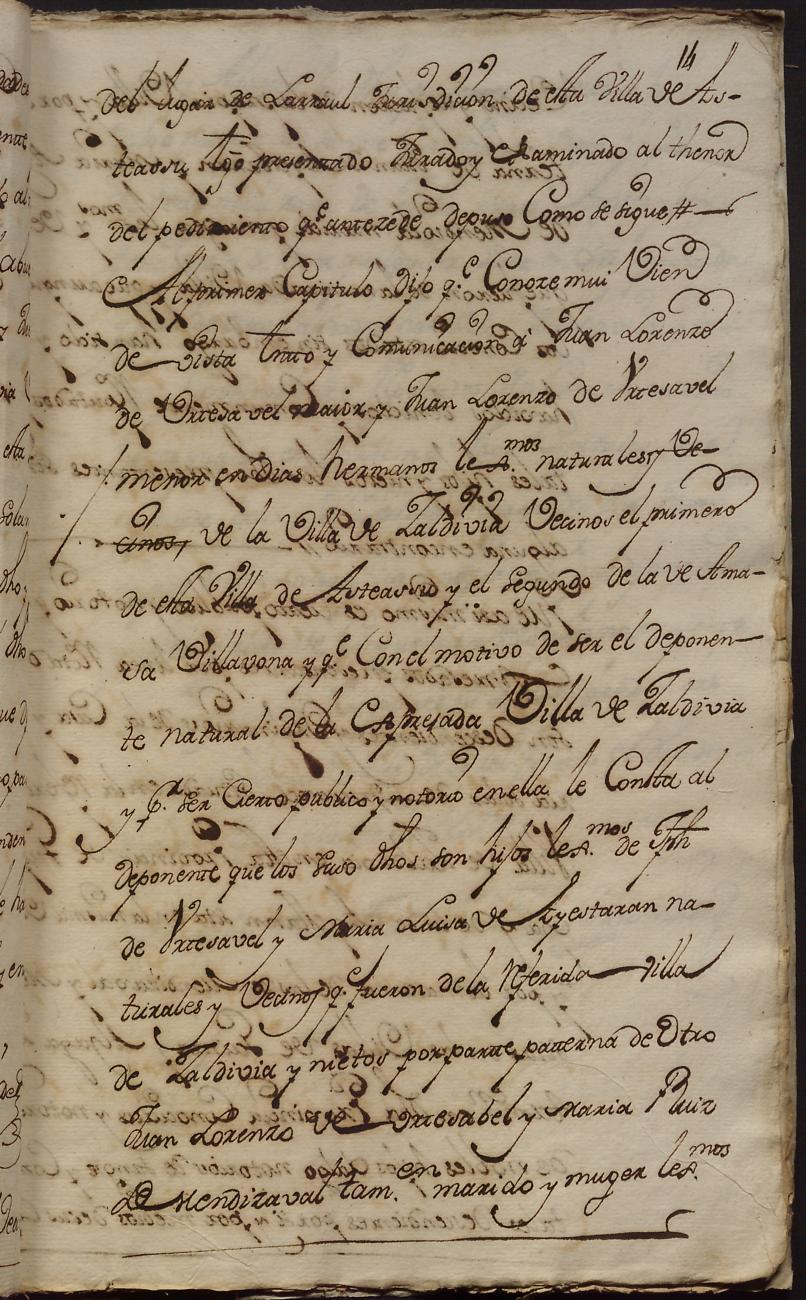 14
del Lugar de Larraul Jurisdicion de esta Villa de As-
teasu tgo presentado Jurado y Examinado al thenor
del pedimiento qe antezede depuso Como se sigue
Al primer Capitulo dijo qe Conoze mui Vien
de Vista trato y Comunicacion a Juan Lorenzo
de Vrtesavel maior y Juan Lorenzo de Vrtesavel
menor en dias hermanos lexmos naturales y Ve-
cinos, de la Villa de Zaldivia Vecinos el primero
de esta Villa de Asteassu y el segundo de la de Ama-
sa Villavona y qe Con el motivo de ser el deponen-
te natural de la Expresada Villa de Zaldivia
y pr ser Cierto publico y notorio en ella le Consta al
deponente que los suso dhos son hijos lexmos de Jph
de Vrtesavel y Maria Luisa de Ayestaran na-
turales y Vecinos qe fueron de la Referida Villa
de Zaldivia y nietos por parte paterna de Otro
Juan Lorenzo de Vrtesabel y Maria Ruiz
de Mendizaval tamen marido y muger lexmos